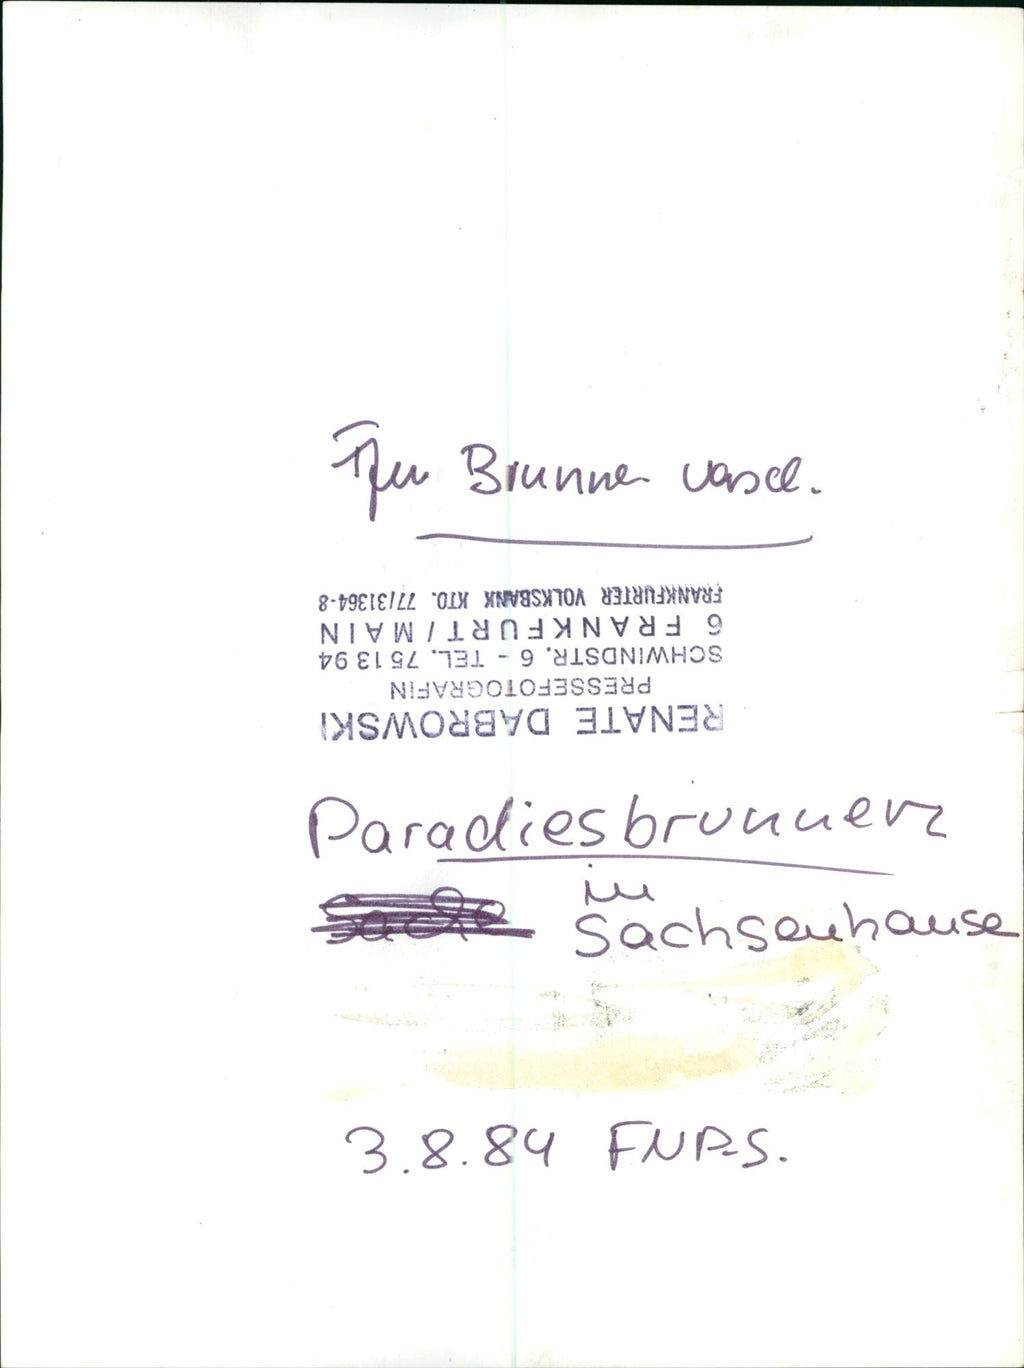 Ffm Brunnen versch.
RENATE DABROWSKI
PRESSEFOTOGRAFIN
SCHWINDSTR. 6 - TEL. 75 13 94
6 FRANKFURT/MAIN
FRANKFURTER VOLKSBANK KTO. 77/31364-8
Paradiesbrunnen
in
Sachsenhause
3.8.84 FNP-S.